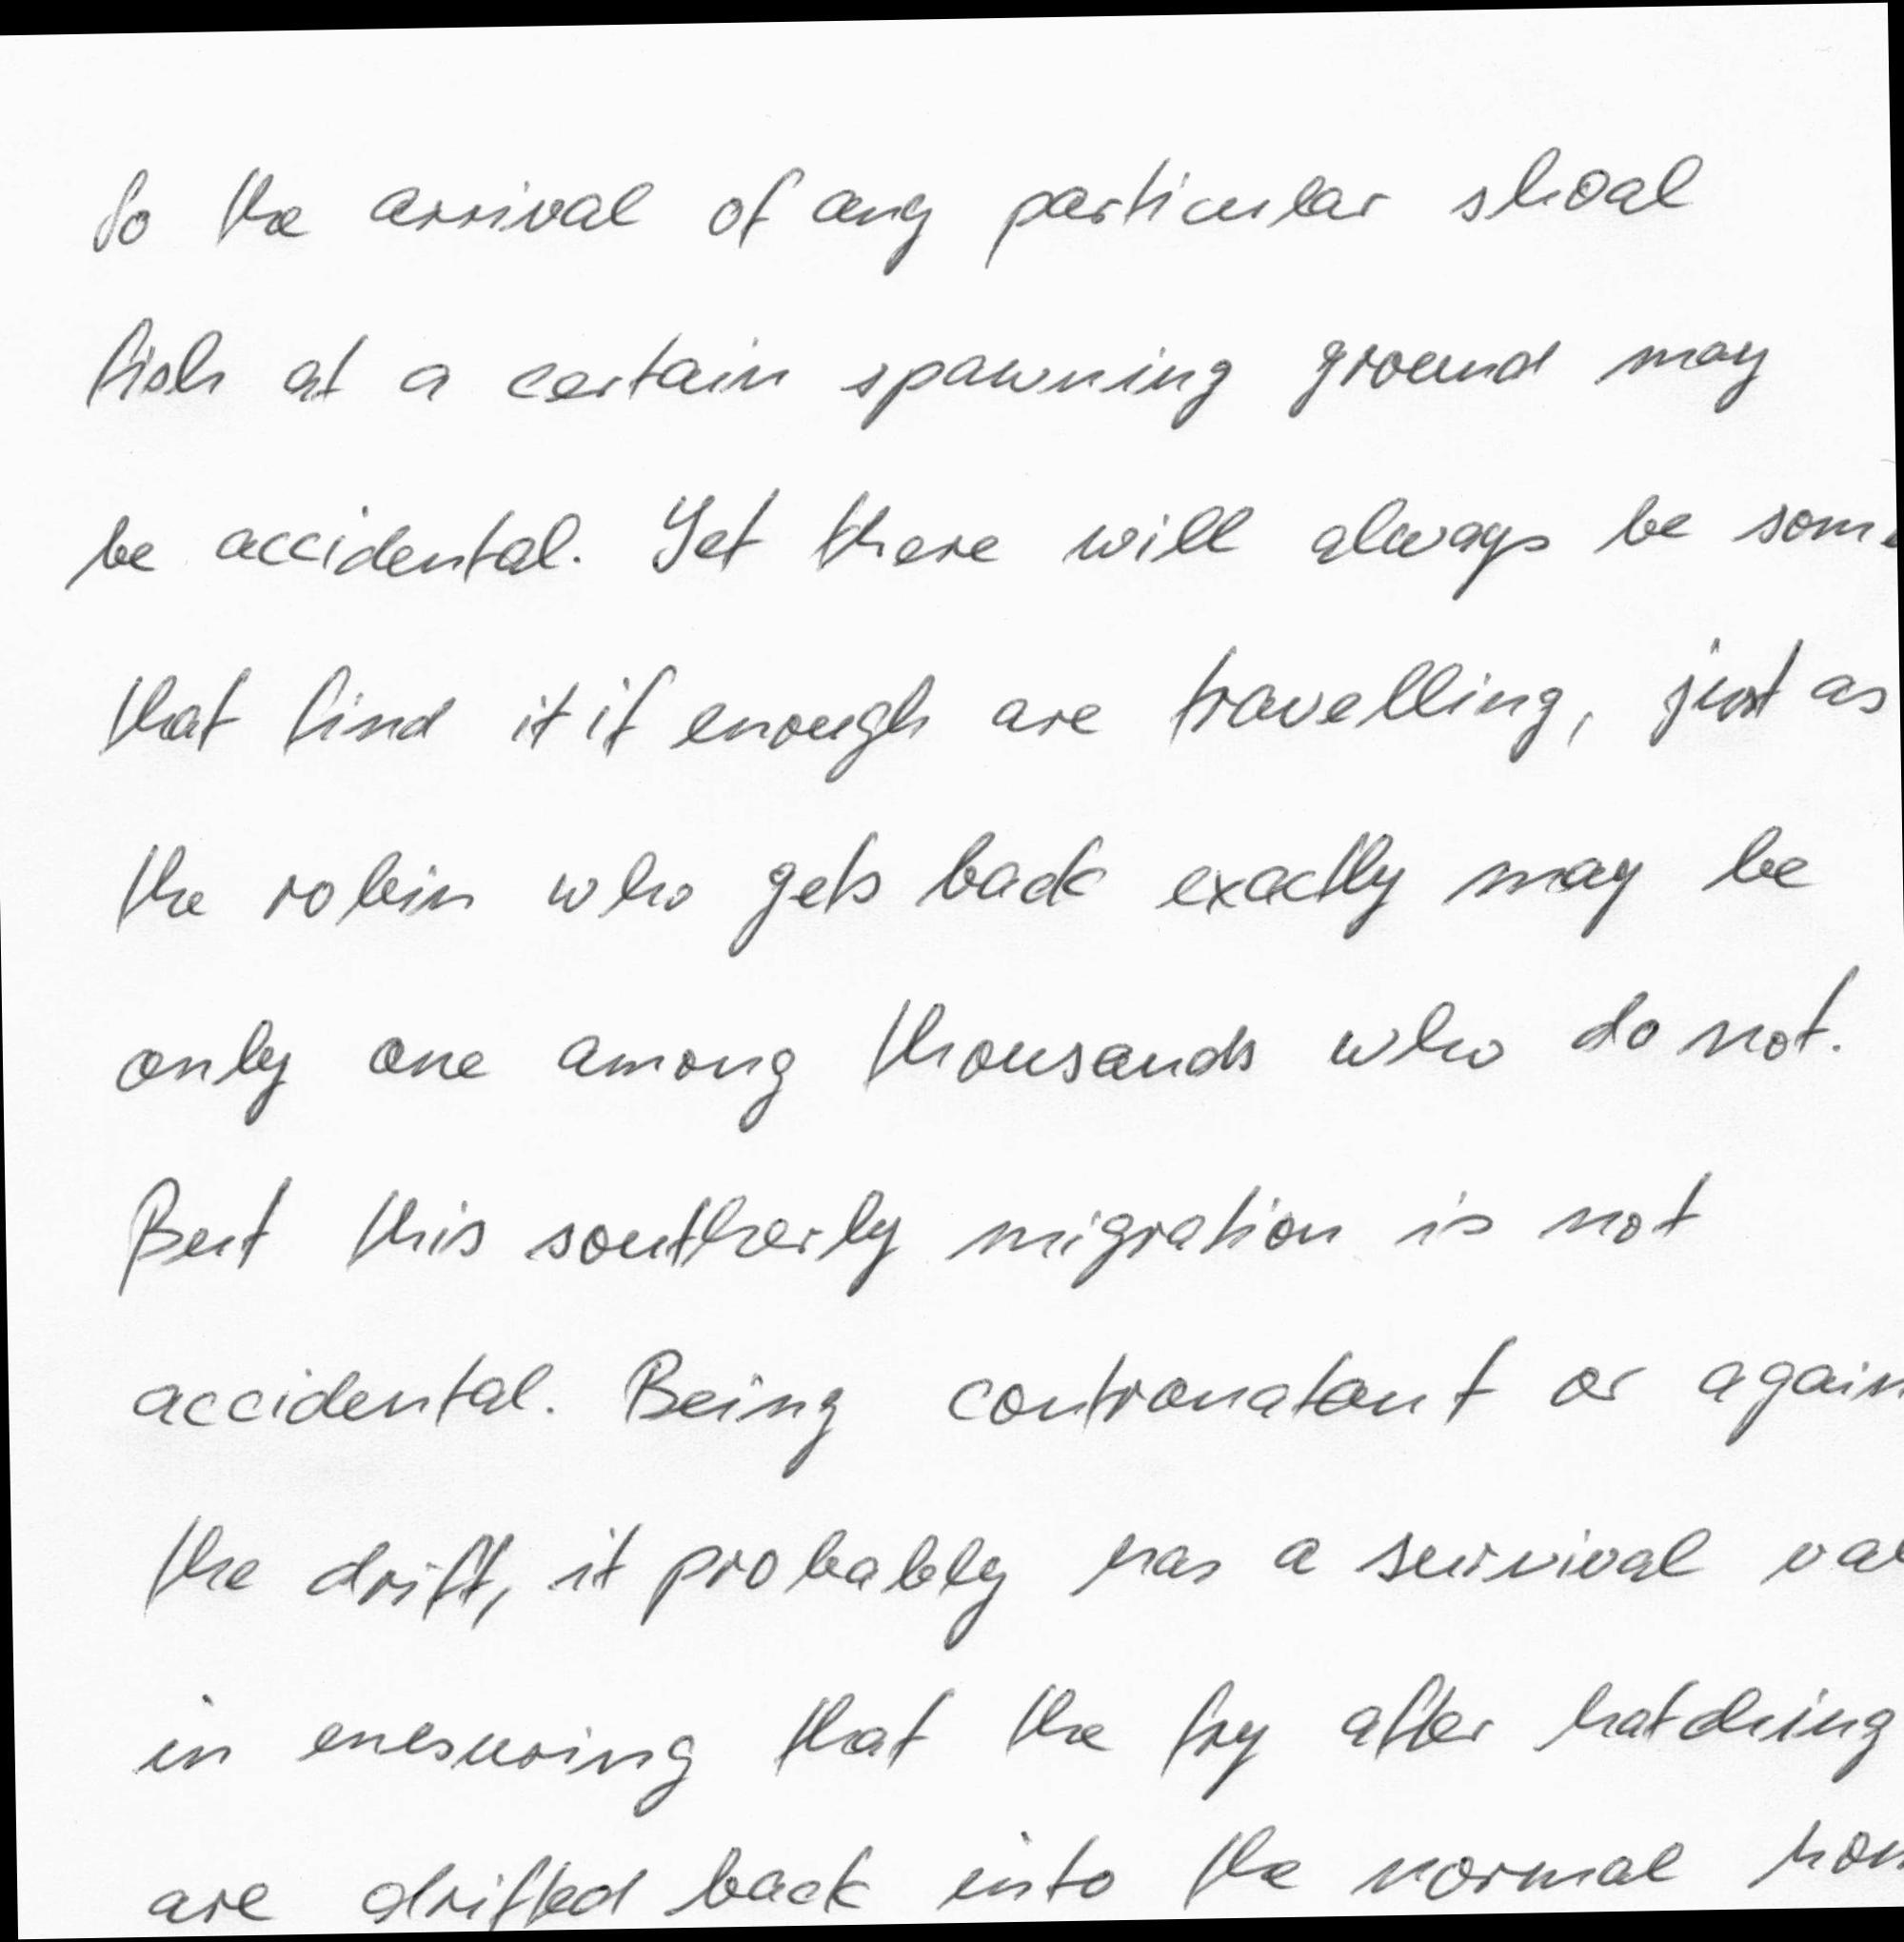 So the arrival of any particular shoal
fish at a certain spawning ground may
be accidental. Yet there will always be some
that find it if enough are travelling, just as
the robin who gets back exactly may be
only one among thousands who do not.
But this southerly migration is not
accidental. Being contranatant or again
the drift, it probably has a survival va
in enesuring that the fry after hatching
are drifted back into the normal hom